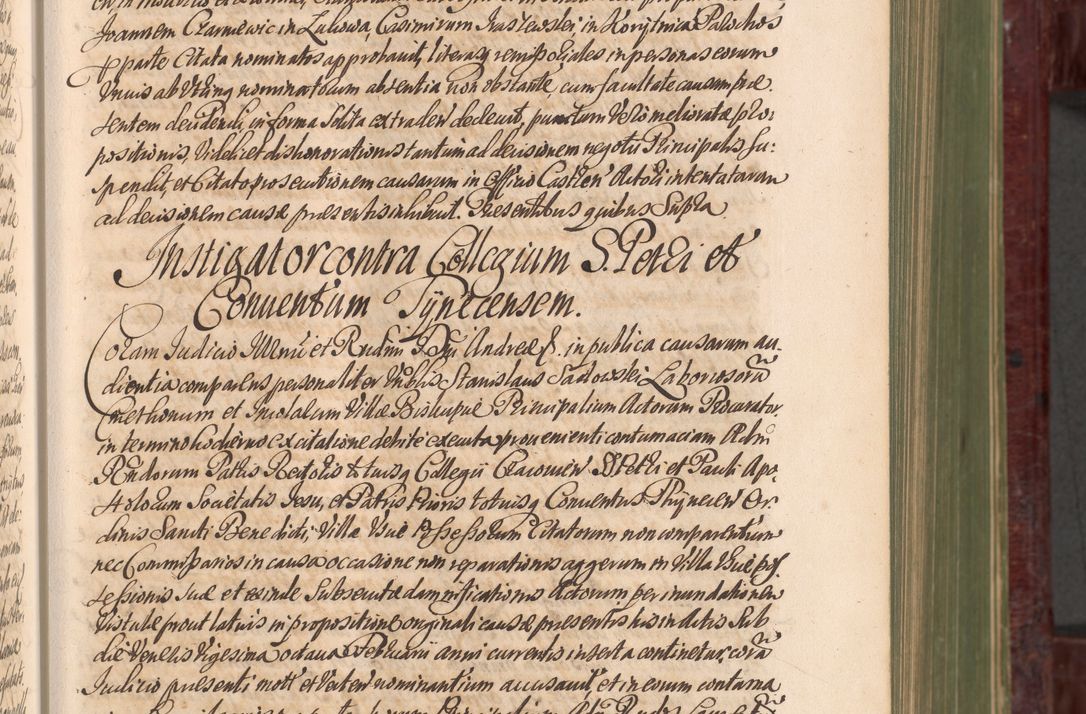 Joannem Czarniewic in Lubowa, Casimirum Jrastewski, in Korytnia Palochos
parte Citata nominatos approbavit, literasq remissoriales in personas eorum
Unius ab Utring nominatorum absentia non obstante cum facultate causam præ
sentem decidendi, in forma solita extradere decrevit, punctum Vero melioratæ pro:
positionis, Videlicet dishonorationis tantum ad decisionem negotii Principalis su:
spendit, et Citato prosecutionem causarum in Officio Castren Actori intentatarum
ad decisionem causæ præsentis inhibuit. Præsentibus quibus Supra
Instigator contra Collegium S. Petri et
Conuentum Tynecensem.
Coram Judicio Illmi et Rndmi D Dni Andreæ &. in publica causarum au
dientia comparens personaliter Nobilis Stanislaus Sadowski Laboriosorū
Cmethonum et Incolarum Villæ Biskupie Principalium Actorum Procurator
in termino hodierno ex citatione debite executa provenienti contumaciam Adm
Rndorum Patris Rectoris totiusq Collegii Cracovien SS Petri et Pauli Apo
stolorum Societatis Jesu, et Patris Prioris totiusq Conventus Thynecien Or
dinis Sancti Benedicti, Villæ Suæ Possessorum Citatorum non comparentium
nec Commissarios in causa occasione non reparationis aggerum in Villa Suæ pos
sessionis sitæ et exinde subsecutæ damnificationis Actorum per inundationem
Vistulæ prout latius in propositione originali causæ præsentis his in Actis Sub
die Veneris Vigesima octava Februarii anni currentis inserta continetur, corā
Judicio præsenti mott et Verten nominantium accusavit, et in eorum contuma